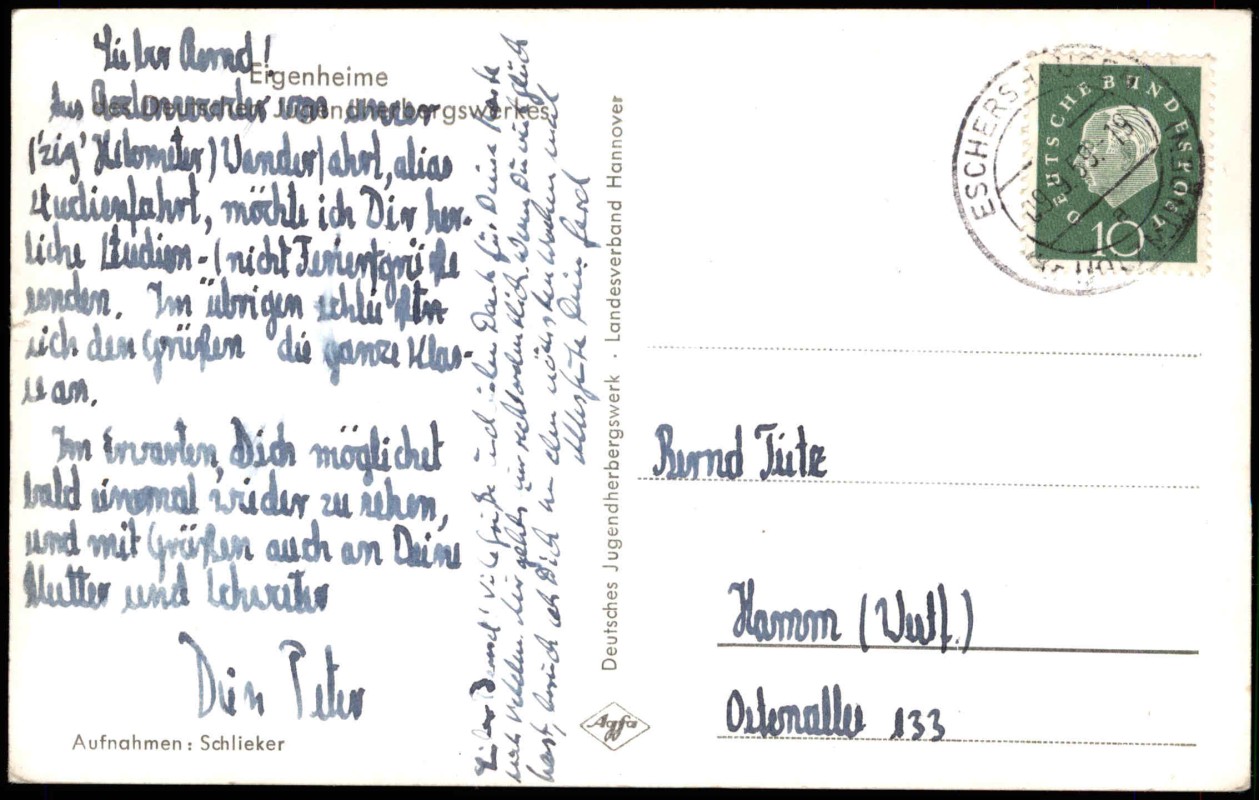 Lieber Bernd!
Eigenheime
des Deutschen Jugendherbergswerkes
Aus von unser
('zig' Kilometer) Wanderfahrt, alias
Studienfahrt, möchte ich Dir herz-
liche Studien-(nicht Feriengrüße
senden. Im übrigen schließen
sich den Grüßen die ganze Klas-
se an.
Im Erwarten, Dich möglichst
bald einmal wieder zu sehen,
und mit Grüßen auch an Deine
Mutter und Schwester
Dein Peter
Aufnahmen: Schlieker
Lieber Bernd! Viele Grüße und vielen Dank für Deine Karte
nach Wenn Du mir geht's ordentlich.
hast, besuch ich Dich an dem nächsten Wochenende
Alles Gute Dein Gerd
Deutsches Jugendherbergswerk · Landesverband Hannover
Agfa
ESCHERSHAUSEN
59.-19
DEUTSCHE BUNDESPOST
10
Bernd Tütz
Hamm (Westf.)
Ostenallee 133